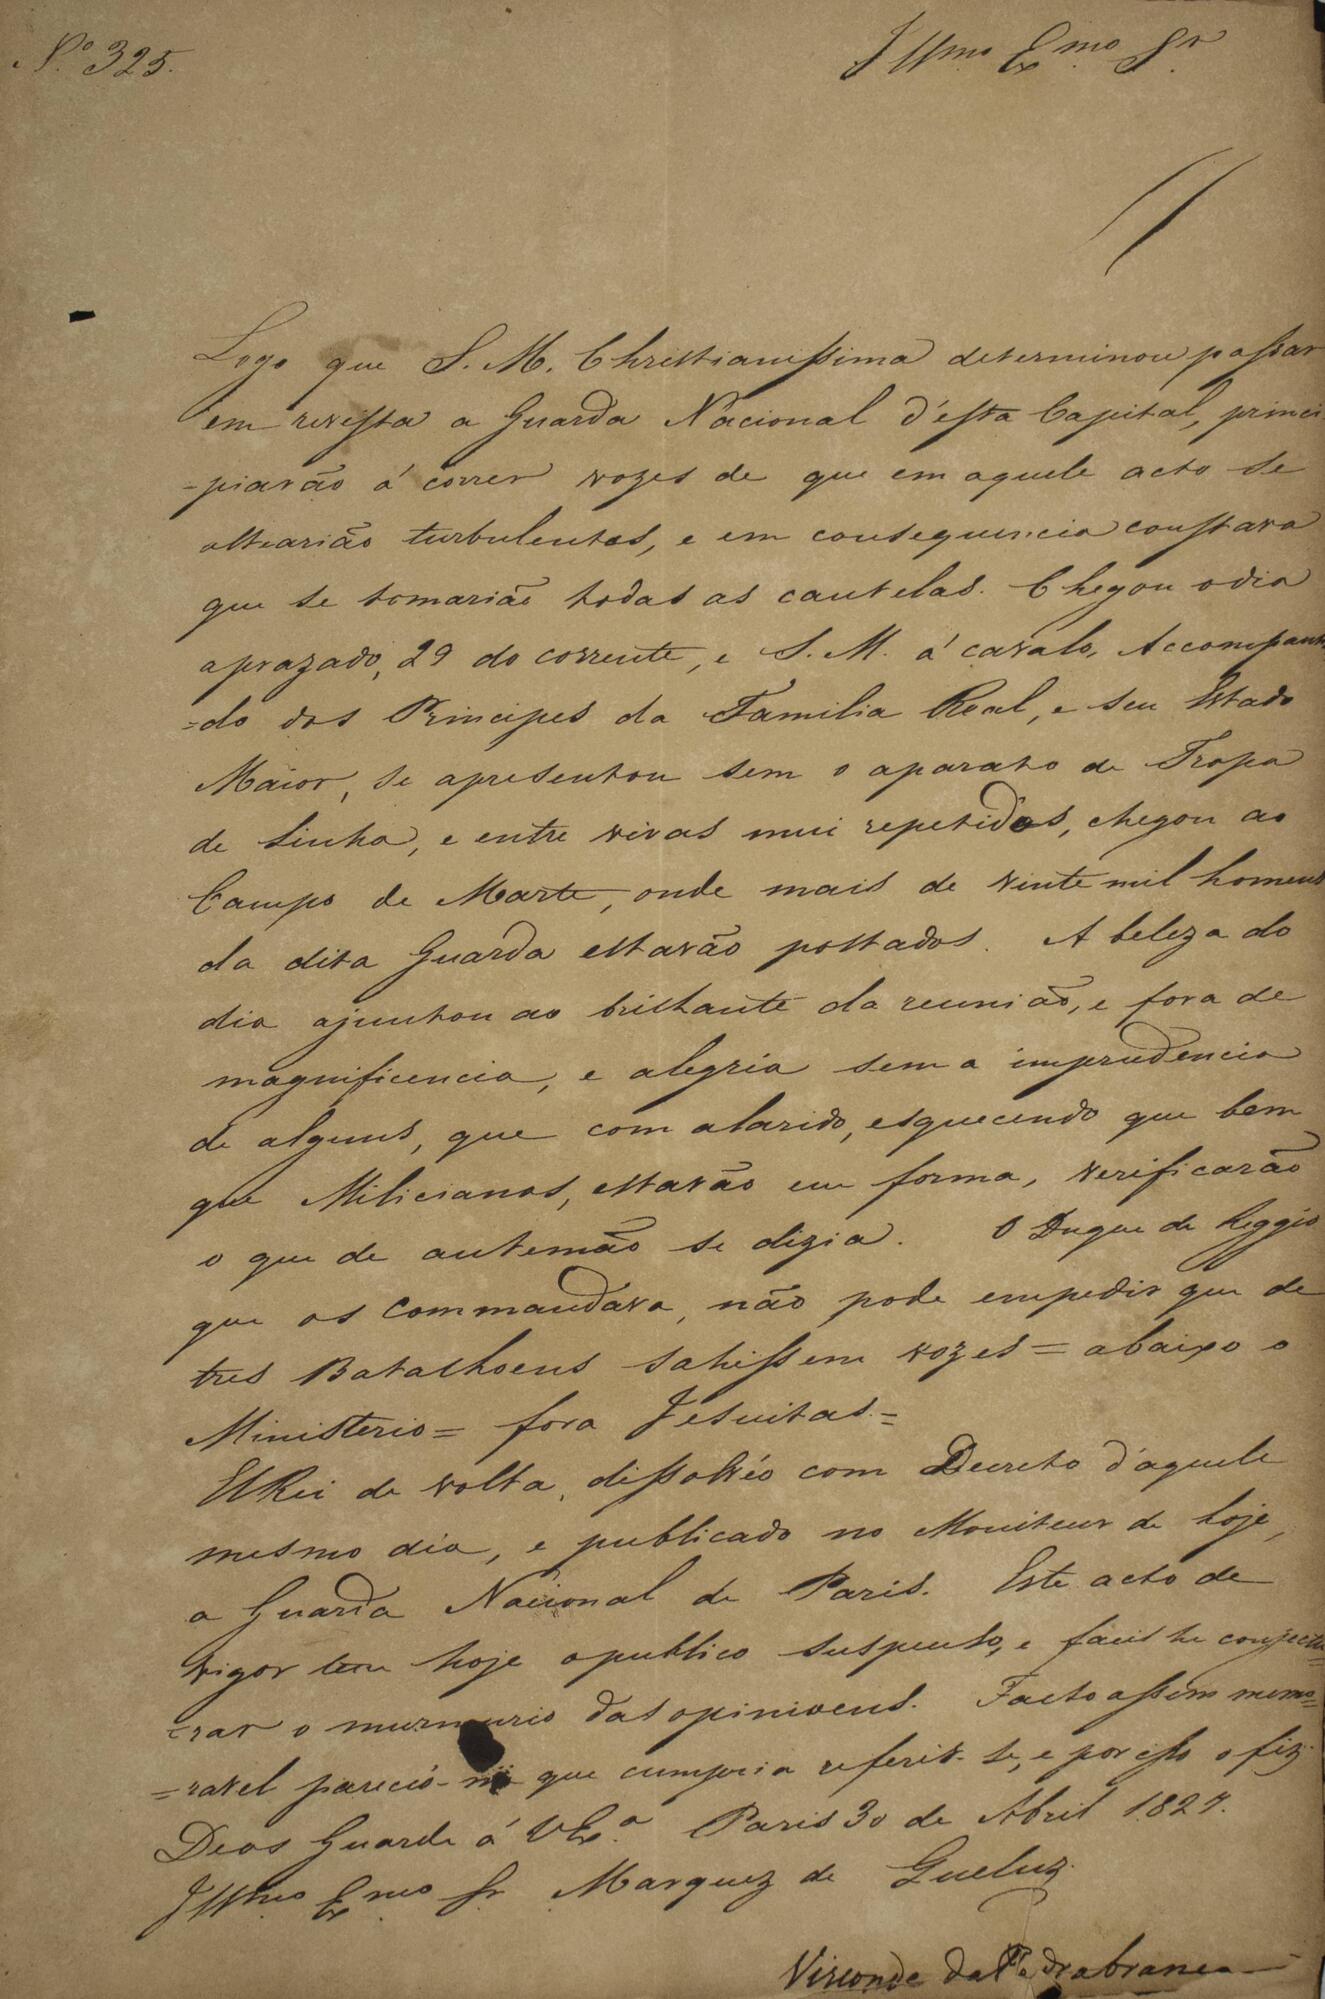 Nº 325.
Illmo Exmo Sr
Logo que S. M. Christianissima determinou passar
em revista a Guarda Nacional d'esta Capital, princi
-piarão á correr vozes de que em aquele acto se
altearião turbulentos, e em consequencia constava
que se tomarião todas as cautelas. Chegou o dia
aprazado, 29 do corrente, e S. M. á cavalo, Accompanha
=do dos Principes da Familia Real, e seu Estado
Maior, se apresentou sem o aparato de Tropa
de Linha, e entre vivas mui repetidos, chegou ao
Campo de Marte, onde mais de vinte mil homens
da dita Guarda estavão postados. A beleza do
dia ajuntou ao brilhante da reunião, e fora de
magnificencia, e alegria sem a imprudencia
de alguns, que com alarido, esquecendo que bem
que Milicianos, estavão em forma, verificarão
o que de antemão se dizia. O Duque de Reggio
que os commandava, não pode empedir que de
tres Batalhoens sahissem vozes = abaixo o
Ministerio = fora Jesuitas. =
ElRei de volta, dissolvéo com Decreto d'aquele
mesmo dia, e publicado no Moniteur de hoje,
a Guarda Nacional de Paris. Este acto de
vigor tem hoje o publico suspenso, e facil he conjectu
=rar o murmurio das opinioens. Facto assim memo=
=ravel pareció-me que cumpria referir-se, e por isso o fiz.
Deos Guarde á V Exª Paris 30 de Abril 1827.
Illmo Exmo Sr Marquez de Queluz.
Visconde da Pedrabranca